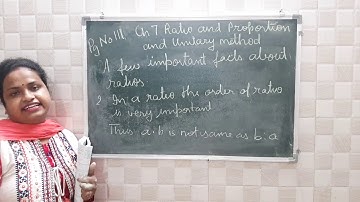 Pg No 111 Ch 7 Ratio and Proportion
and Unitary method
A few important facts about
ratios
2. In a ratio the order of ratio
is very important
Thus a:b is not same as b:a